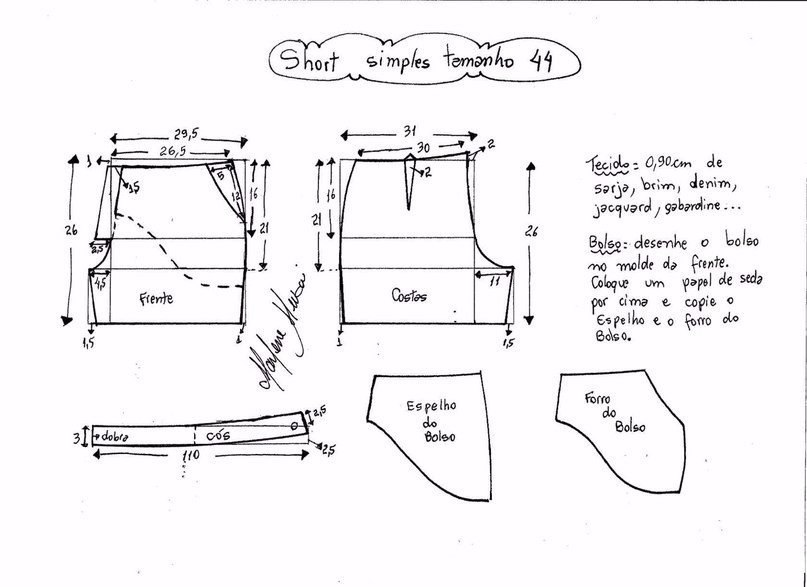 Short simples tamanho 44
29,5
26,5
1
1,5
5
12
16
21
26
2,5
4,5
Frente
1,5
1
31
30
2
2
16
21
26
Costas
11
1
1,5
Tecido: 0,90cm de
sarja, brim, denim,
jacquard, gabardine...
Bolso: desenhe o bolso
no molde da frente.
Coloque um papel de seda
por cima e copie o
Espelho e o forro do
Bolso.
Marlene Mukai
3
dobra
cós
2,5
2,5
110
Espelho
do
Bolso
Forro
do
Bolso